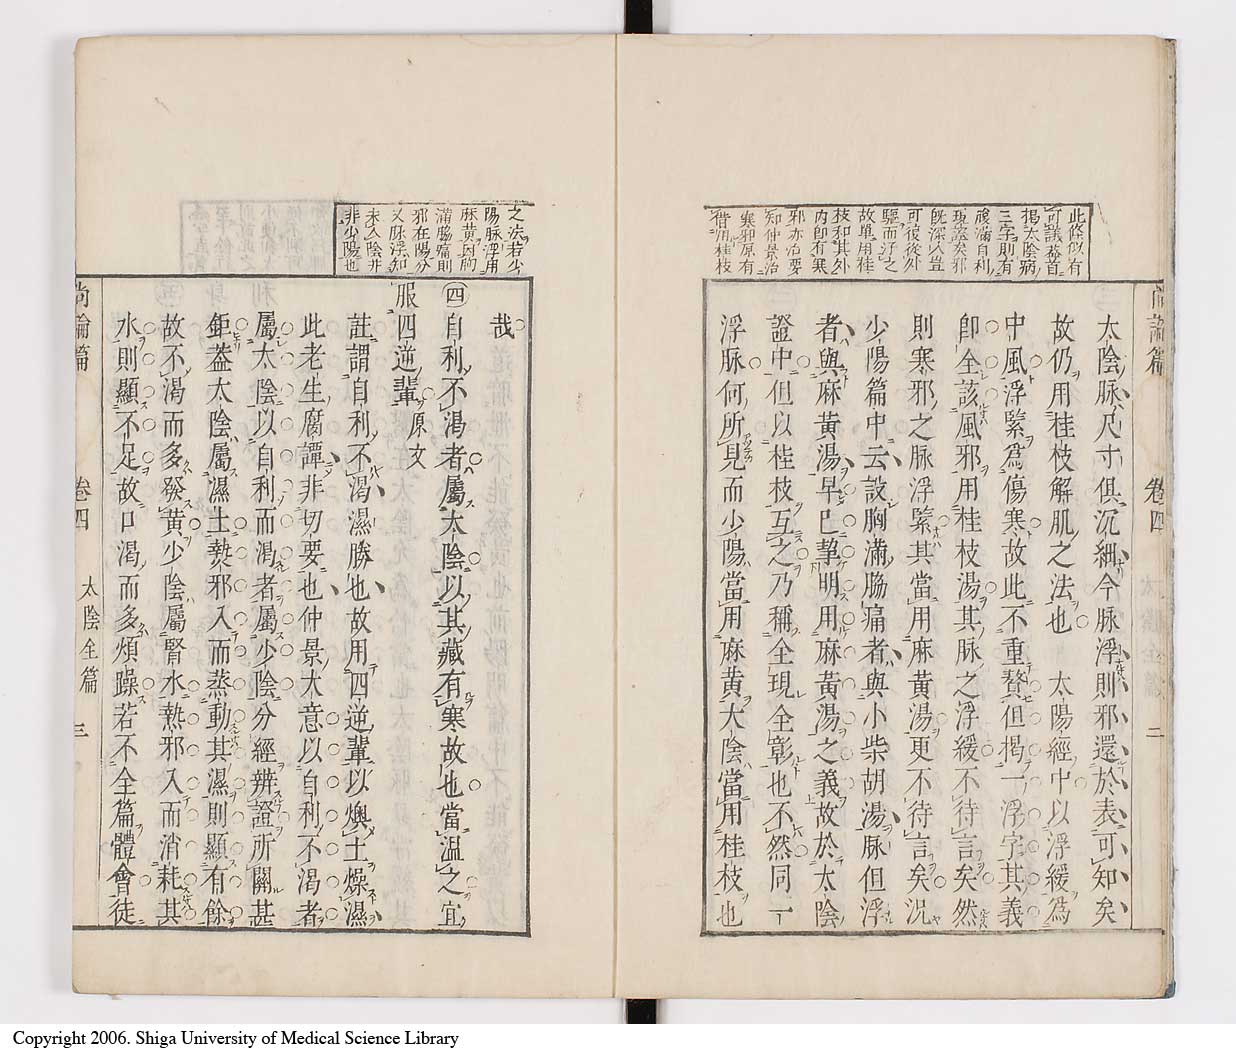 此條似有
可議蓋首
揭太陰病
三字則有
腹滿自利
現證矣邪
旣深入豈
可從後外
驅而汗之
故單用桂
枝和其外
内卽有寒
邪亦治要
知仲景治
寒邪原有
借用桂枝
尚論篇 卷四 太陰全篇 二
太陰脉尺寸俱沉細今脉浮則邪還於表可知矣
故仍用桂枝解肌之法也 太陽經中以浮緩爲
中風浮緊爲傷寒故此不重贅但揭一浮字其義
卽全該風邪用桂枝湯其脉之浮緩不待言矣然
則寒邪之脉浮緊其當用麻黄湯更不待言矣況
少陽篇中云設胸滿脇痛者與小柴胡湯脉但浮
者與麻黄湯早已挈明用麻黄湯之義故於太陰
證中但以桂枝互之乃稱全現全彰也不然同一
浮脉何所見而少陽當用麻黄太陰當用桂枝也
之法若少
陽脉浮用
麻黄因胸
滿脇痛則
邪在陽分
又脉浮知
未入陰并
非少陽也
哉
㊃自利不渴者屬太陰以其藏有寒故也當温之宜
服四逆輩 原文
註謂自利不渴濕勝也故用四逆輩以燠土燥濕
此老生腐譚非切要也仲景大意以自利不渴者
屬太陰以自利而渴者屬少陰分經辨證所關甚
鉅葢太陰屬濕土熱邪入而蒸動其濕則顯有餘
故不渴而多發黄少陰屬腎水熱邪入而消耗其
水則顯不足故口渴而多煩躁若不全篇體會徒
尚論篇 卷四 太陰全篇 三
Copyright 2006. Shiga University of Medical Science Library